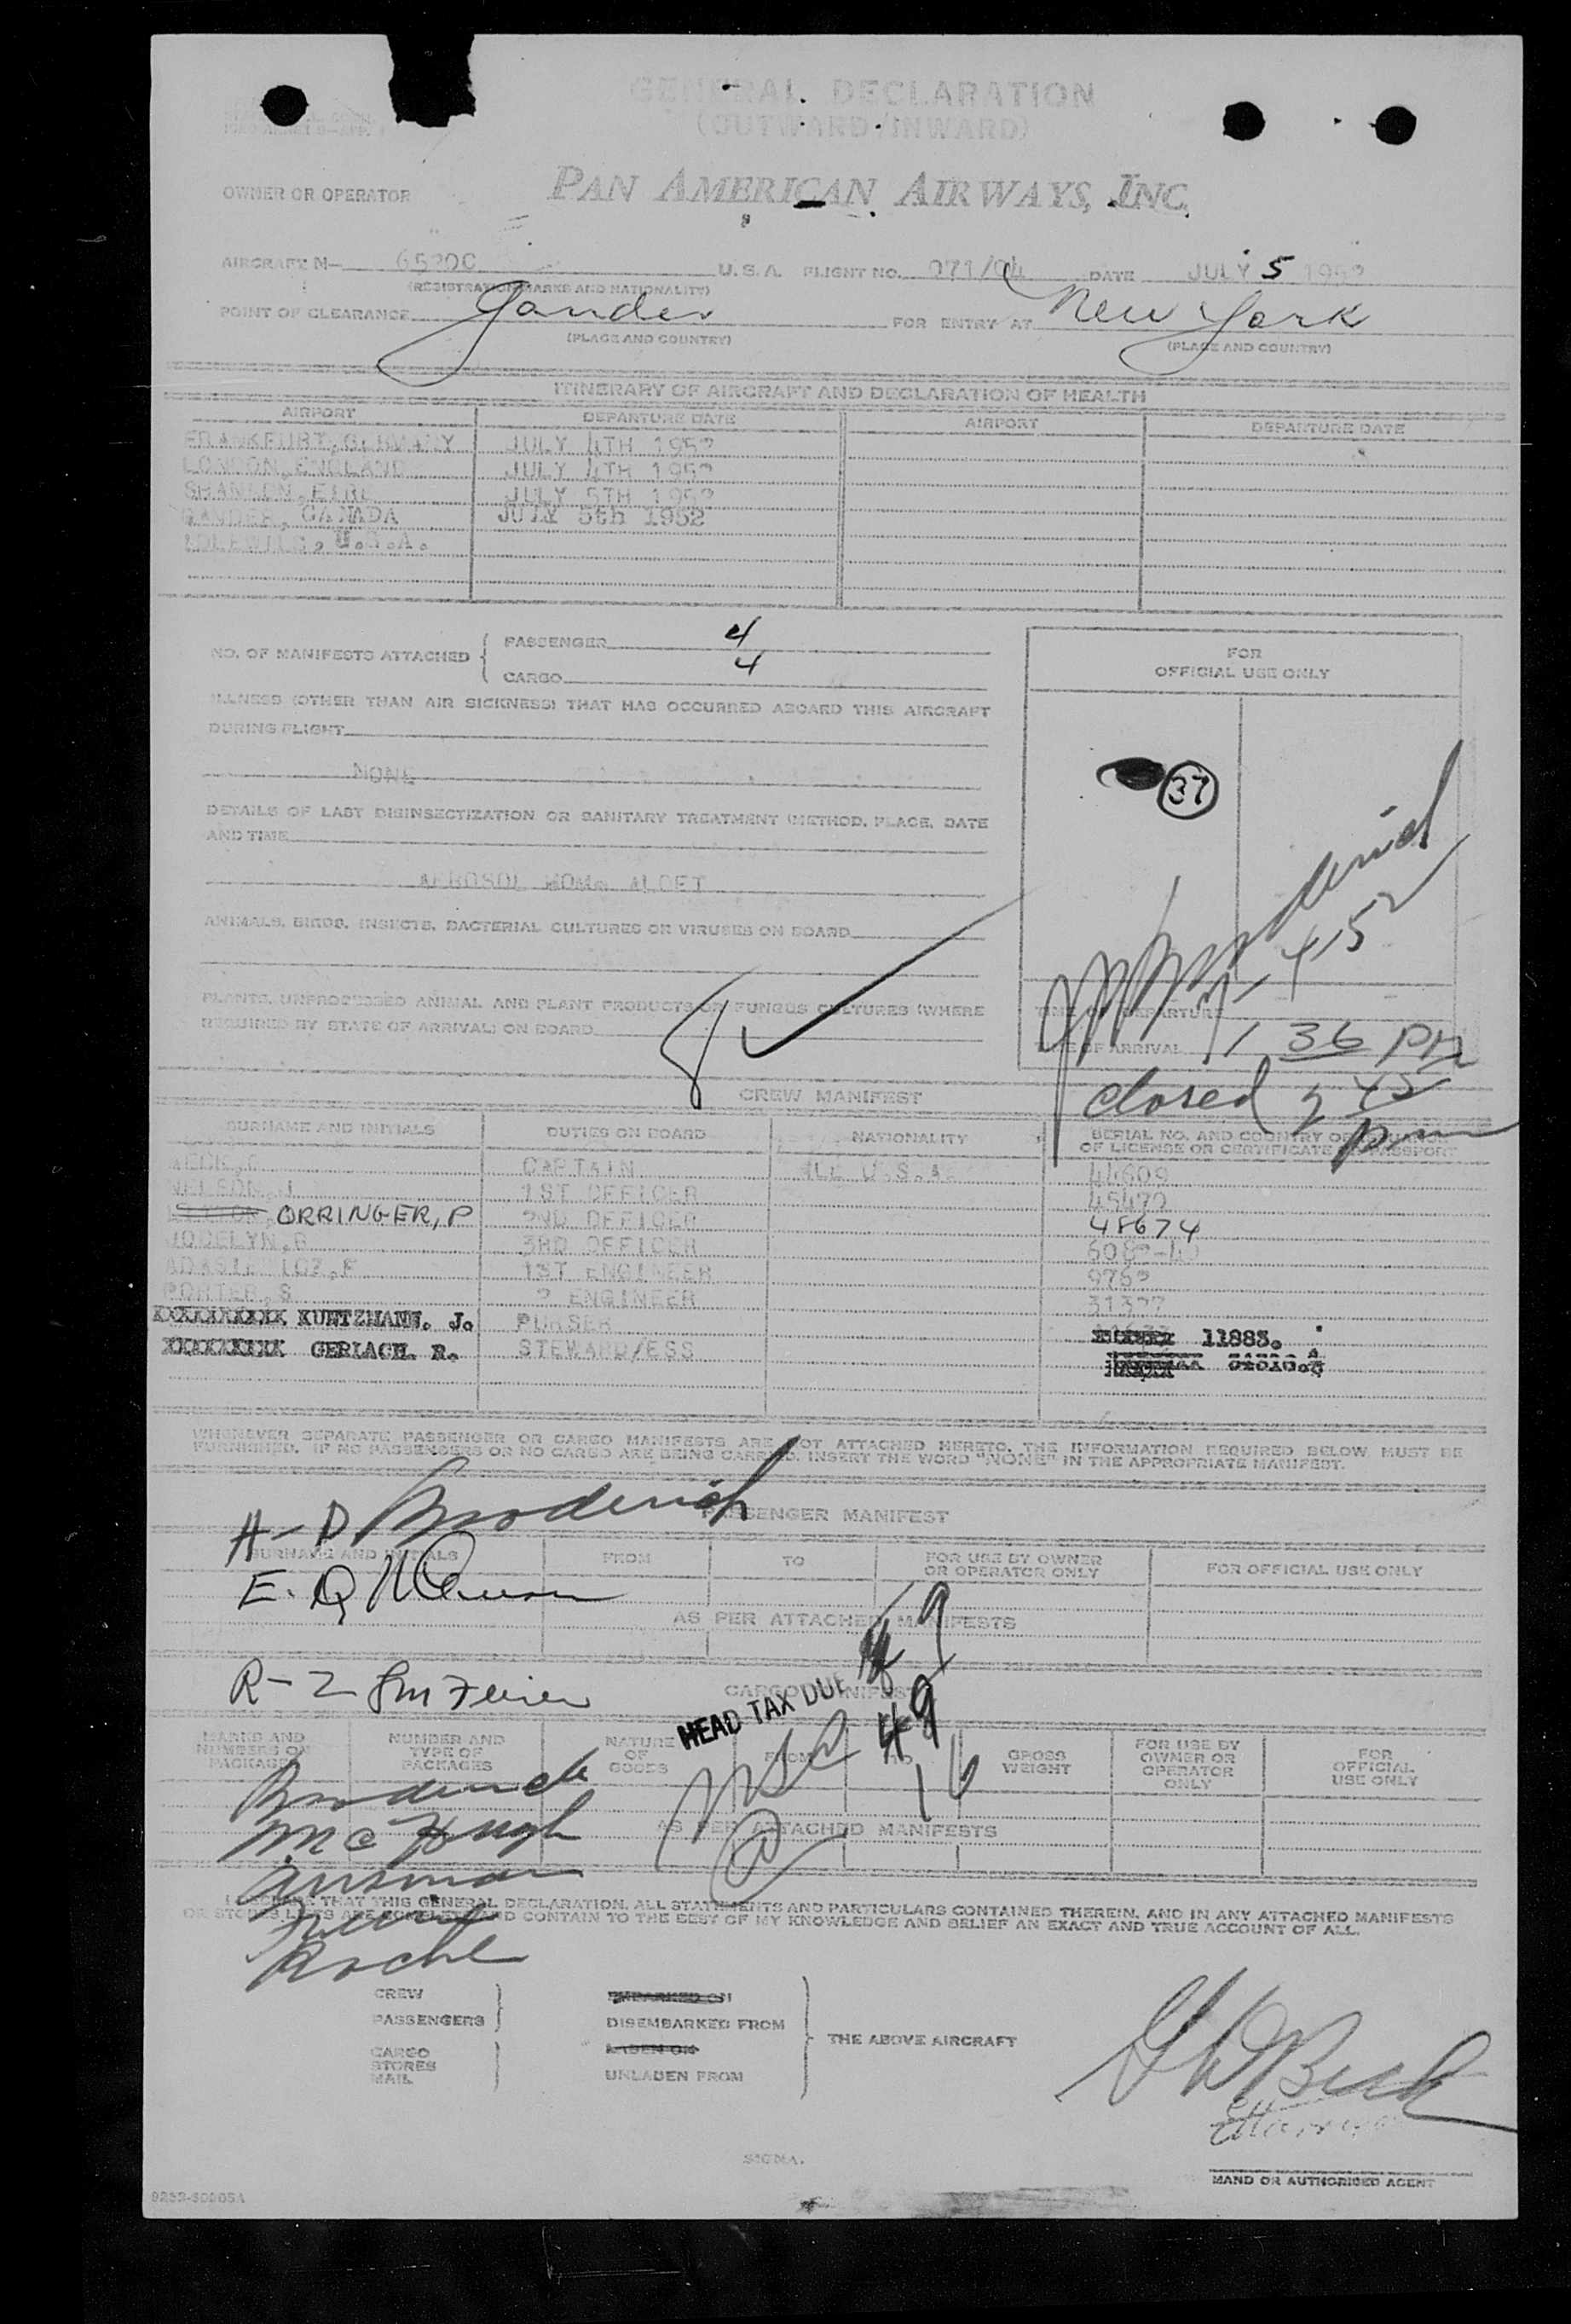 GENERAL DECLARATION
(OUTWARD/INWARD)
OWNER OR OPERATOR PAN AMERICAN AIRWAYS, INC.
AIRCRAFT N— U.S.A. FLIGHT NO. 071/04 DATE JULY 5 1952
(REGISTRATION MARKS AND NATIONALITY)
POINT OF CLEARANCE Gander FOR ENTRY AT New York
(PLACE AND COUNTRY) (PLACE AND COUNTRY)
ITINERARY OF AIRCRAFT AND DECLARATION OF HEALTH
AIRPORT DEPARTURE DATE AIRPORT DEPARTURE DATE
FRANKFURT, GERMANY JULY 4TH 1952
LONDON, ENGLAND JULY 4TH 1952
SHANNON, EIRE JULY 5TH 1952
GANDER, CANADA JULY 5th 1952
IDLEWILD, U.S.A.
NO. OF MANIFESTS ATTACHED
PASSENGER 4
CARGO 4
FOR
OFFICIAL USE ONLY
ILLNESS (OTHER THAN AIR SICKNESS) THAT HAS OCCURRED ABOARD THIS AIRCRAFT
DURING FLIGHT
NONE
37
DETAILS OF LAST DISINSECTIZATION OR SANITARY TREATMENT (METHOD, PLACE, DATE
AND TIME
AEROSOL
ANIMALS, BIRDS, INSECTS, BACTERIAL CULTURES OR VIRUSES ON BOARD
PLANTS, UNPROCESSED ANIMAL AND PLANT PRODUCTS OR FUNGUS CULTURES (WHERE
REQUIRED BY STATE OF ARRIVAL) ON BOARD
TIME OF DEPARTURE
TIME OF ARRIVAL 1 36 PM
closed 2 45
pm
CREW MANIFEST
SURNAME AND INITIALS DUTIES ON BOARD NATIONALITY SERIAL NO. AND COUNTRY OF ISSUANCE
OF LICENSE OR CERTIFICATE OR PASSPORT
CAPTAIN ALL U.S.A. 44609
NELSON, J 1ST OFFICER 45479
ORRINGER, P 2ND OFFICER 48674
JOCELYN, B 3RD OFFICER
1ST ENGINEER
PORTER, S 2 ENGINEER
XXXXXXXXXX KUNTZMANN. J. PURSER 11883.
XXXXXXXXX GERLACH. R. STEWARD/ESS
WHENEVER SEPARATE PASSENGER OR CARGO MANIFESTS ARE NOT ATTACHED HERETO, THE INFORMATION REQUIRED BELOW MUST BE
FURNISHED. IF NO PASSENGERS OR NO CARGO ARE BEING CARRIED, INSERT THE WORD "NONE" IN THE APPROPRIATE MANIFEST.
A-D Broderick
PASSENGER MANIFEST
SURNAME AND INITIALS FROM TO FOR USE BY OWNER
OR OPERATOR ONLY FOR OFFICIAL USE ONLY
E. Q
AS PER ATTACHED MANIFESTS
R-Z
CARGO MANIFEST
HEAD TAX DUE
49
16
MARKS AND
NUMBERS ON
PACKAGES NUMBER AND
TYPE OF
PACKAGES NATURE
OF
GOODS FROM TO GROSS
WEIGHT FOR USE BY
OWNER OR
OPERATOR
ONLY FOR
OFFICIAL
USE ONLY
Broderick
McHugh
AS PER ATTACHED MANIFESTS
Roche
I DECLARE THAT THIS GENERAL DECLARATION, ALL STATEMENTS AND PARTICULARS CONTAINED THEREIN, AND IN ANY ATTACHED MANIFESTS
OR STORES LISTS ARE COMPLETE AND CONTAIN TO THE BEST OF MY KNOWLEDGE AND BELIEF AN EXACT AND TRUE ACCOUNT OF ALL.
CREW EMBARKED ON
PASSENGERS DISEMBARKED FROM
THE ABOVE AIRCRAFT
CARGO LADEN ON
STORES
MAIL UNLADEN FROM
SIGMA.
MAND OR AUTHORISED AGENT